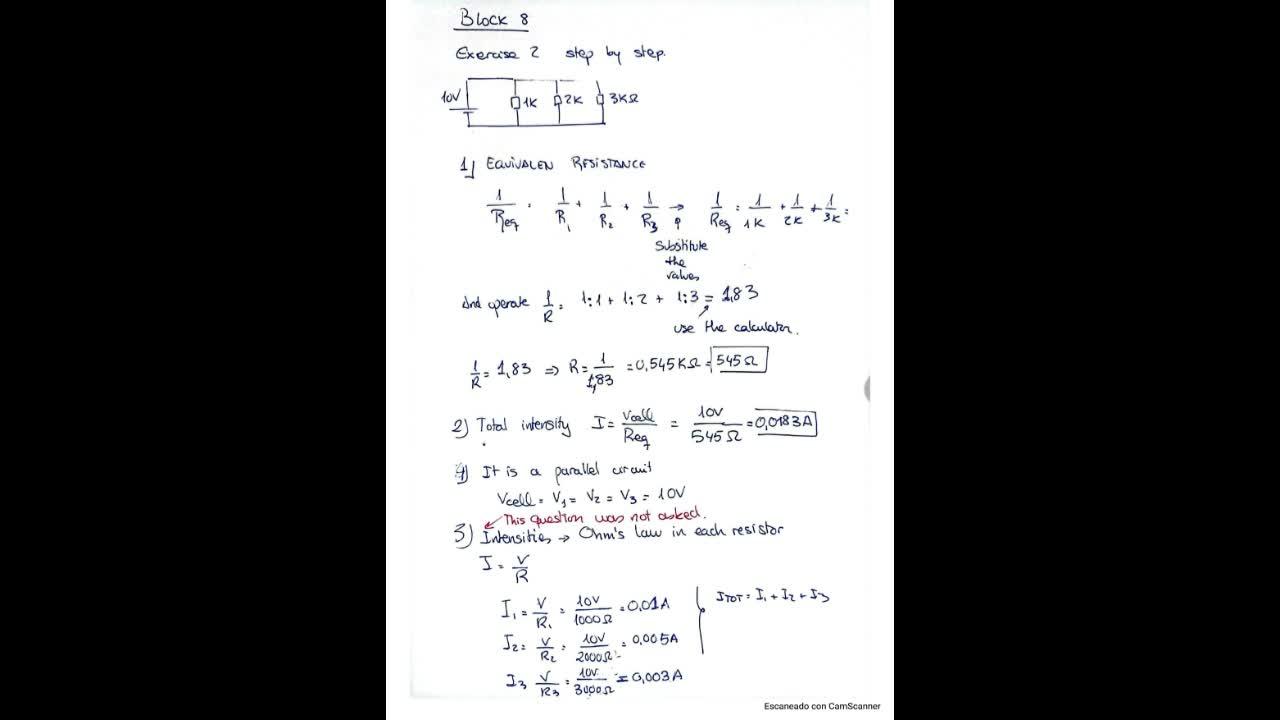 Block 8
Exercise 2 step by step.
10V 1K 2K 3KΩ
1) EQUIVALEN RESISTANCE
1/Req = 1/R1 + 1/R2 + 1/R3 → 1/Req = 1/1K + 1/2K + 1/3K =
Substitute
the
values
And operate 1/R = 1:1 + 1:2 + 1:3 = 1,83
use the calculator.
1/R = 1,83 ⇒ R = 1/1,83 = 0,545KΩ = 545Ω
2) Total intensity I = Vcell/Req = 10V/545Ω = 0,0183A
4) It is a parallel circuit
Vcell = V1 = V2 = V3 = 10V
This question was not asked.
3) Intensities → Ohm's law in each resistor
I = V/R
I1 = V/R1 = 10V/1000Ω = 0,01A
ITOT = I1 + I2 + I3
I2 = V/R2 = 10V/2000Ω = 0,005A
I3 V/R3 = 10V/3000Ω = 0,003A
Escaneado con CamScanner